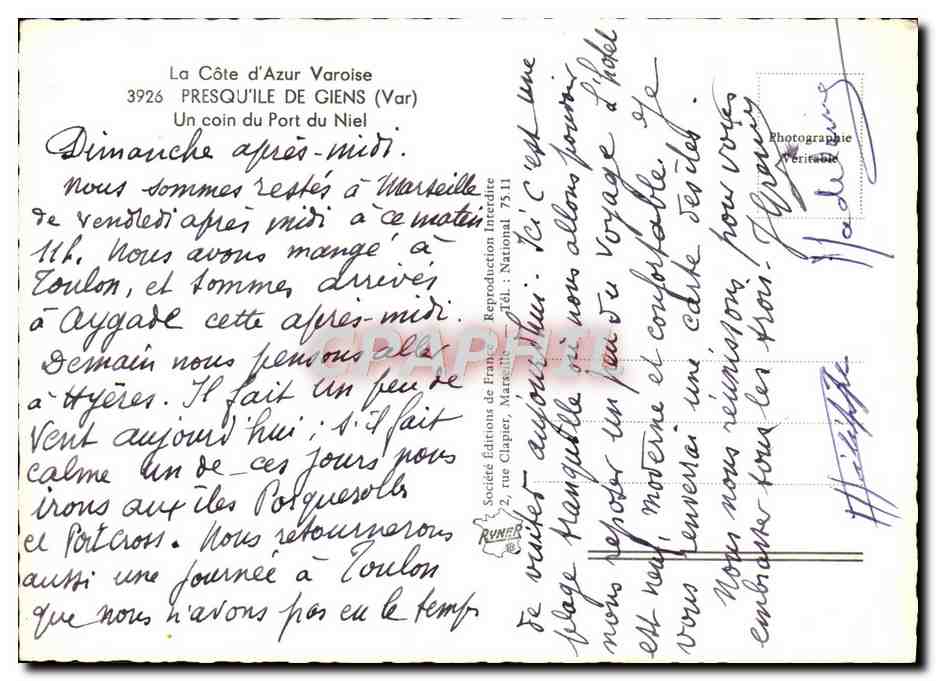 La Côte d'Azur Varoise
3926 PRESQU'ILE DE GIENS (Var)
Un coin du Port du Niel
Dimanche après-midi.
Nous sommes restés à Marseille
de vendredi après midi à ce matin
11h. Nous avons mangé à
Toulon, et sommes arrivés
à Aygade cette après-midi.
Demain nous pensons aller
à Hyères. Il fait un peu de
vent aujourd'hui ; s'il fait
calme un de ces jours nous
irons aux îles Porquerolles
et Port Cross. Nous retournerons
aussi une journée à Toulon
que nous n'avons pas eu le temps
de visiter aujourd'hui. Ici c'est une
plage tranquille où nous allons pouvoir
nous reposer un peu du voyage. L'hôtel
est neuf, moderne et confortable. Je
vous renverrai une carte des îles.
Nous nous réunissons pour vous
embrasser tous les trois.
Philippe
Société Éditions de France - Reproduction Interdite
2, rue Clapier, Marseille — Tél. : National 75.11
RYNER
Photographie
Véritable
CPAPHIL